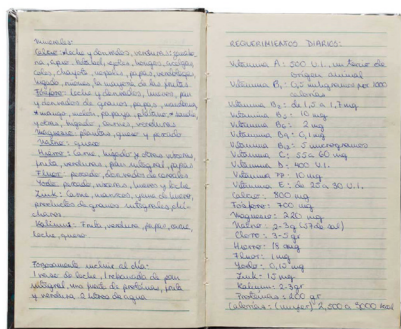 Minerales:
Calcio: Leche y derivados, verduras:
hígado, nueces, la mayoría de las frutas
Fósforo: Leche y derivados, huevos, pan
y derivados de granos, papas,
mango, melón, papaya, plátano
hígado, carnes, verduras
Magnesio: plantas, queso y pescado
Natrio: queso
Hierro: Carne, hígado y otras vísceras
fruta, verduras, pan integral, papas
Fluor: pescado, derivados de cereales
Yodo: pescado, mariscos, huevos y leche
Zink: Carne, mariscos, yema de huevo,
productos de granos integrales
Kalium: Fruta, verdura, papas, carne,
leche, queso
incluir al día:
1 vaso de leche, 1 rebanada de pan
integral, una parte de proteínas, fruta
y verdura, 2 litros de agua
REQUERIMIENTOS DIARIOS:
Vitamina A: 500 U.I., un tercio de
origen animal
Vitamina B1: 0,5 miligramos por 1000
calorías
Vitamina B2: de 1,5 a 1,7 mg
Vitamina B5: 10 mg
Vitamina B6: 2 mg
Vitamina B9: 0,1 mg
Vitamina B12: 5 microgramos
Vitamina C: 55 a 60 mg
Vitamina D: 400 U.I.
Vitamina PP: 10 mg
Vitamina E: de 25 a 30 U.I.
Calcio: 800 mg
Fósforo: 700 mg
Magnesio: 220 mg
Natrio: 2-3g
Cloro: 3-5 gr
Hierro: 18 mg
Fluor: 1 mg
Yodo: 0,15 mg
Zink: 15 mg
Kalium: 2-3 gr
Proteínas: 200 gr
Calorías: (mujer) 2,500 a 3000 kcal